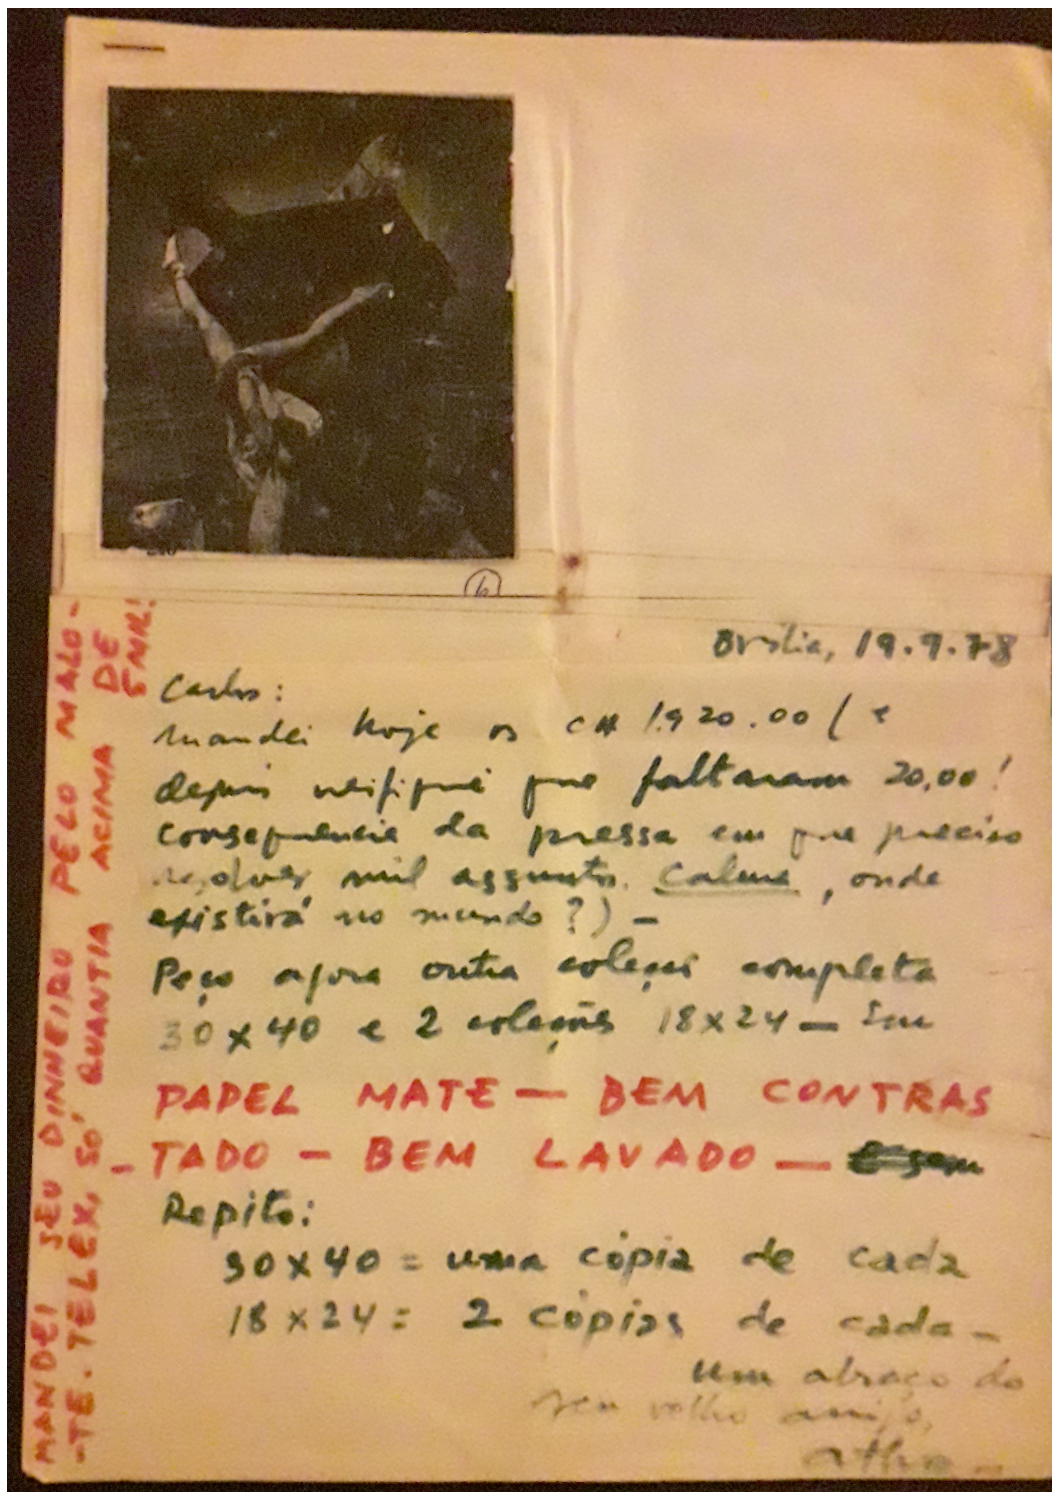 Brasília, 19.9.78
Carlos:
mandei hoje os CR$ 1.920.00 ( e
depois verifiquei que faltaram 20,00!
Consequencia da pressa em que preciso
resolver mil assuntos. Calma, onde
existirá no mundo?) —
Peço agora outra coleção completa
30 x 40 e 2 coleções 18 x 24 — Em
PAPEL MATE — BEM CONTRAS
- TADO — BEM LAVADO —
Repito:
30 x 40 = uma cópia de cada
18 x 24 = 2 cópias de cada —
um abraço do
seu velho amigo,
athos —
MANDEI SEU DINHEIRO PELO MALO-
-TE. TELEX, SÓ QUANTIA ACIMA DE
5 MIL!